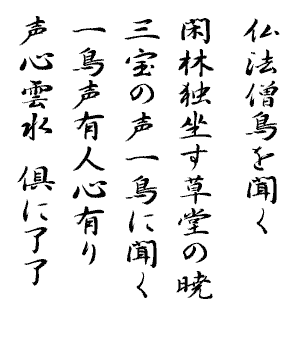 仏法僧鳥を聞く
閑林独坐す草堂の暁
三宝の声一鳥に聞く
一鳥声有人心有り
声心雲水 倶に了了